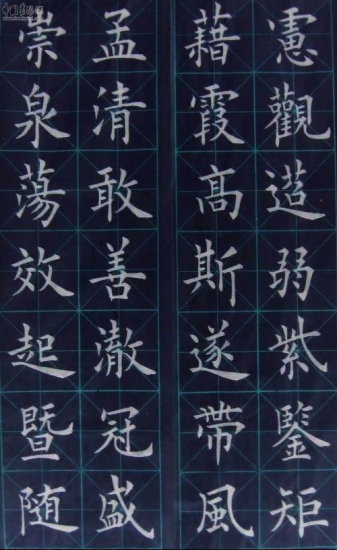 憲觀迢弱紫鑒矩
藉霞高斯遂帶風
孟清敢善澈冠盛
崇泉蕩效起暨随